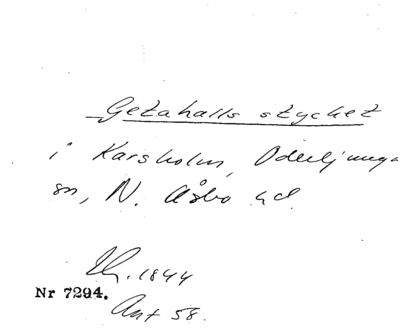 Getahalls stycket
i Karsholm, Oderljunga
sn, N. Åsbo hd.
1844
Nr 7294.
Ant 58.